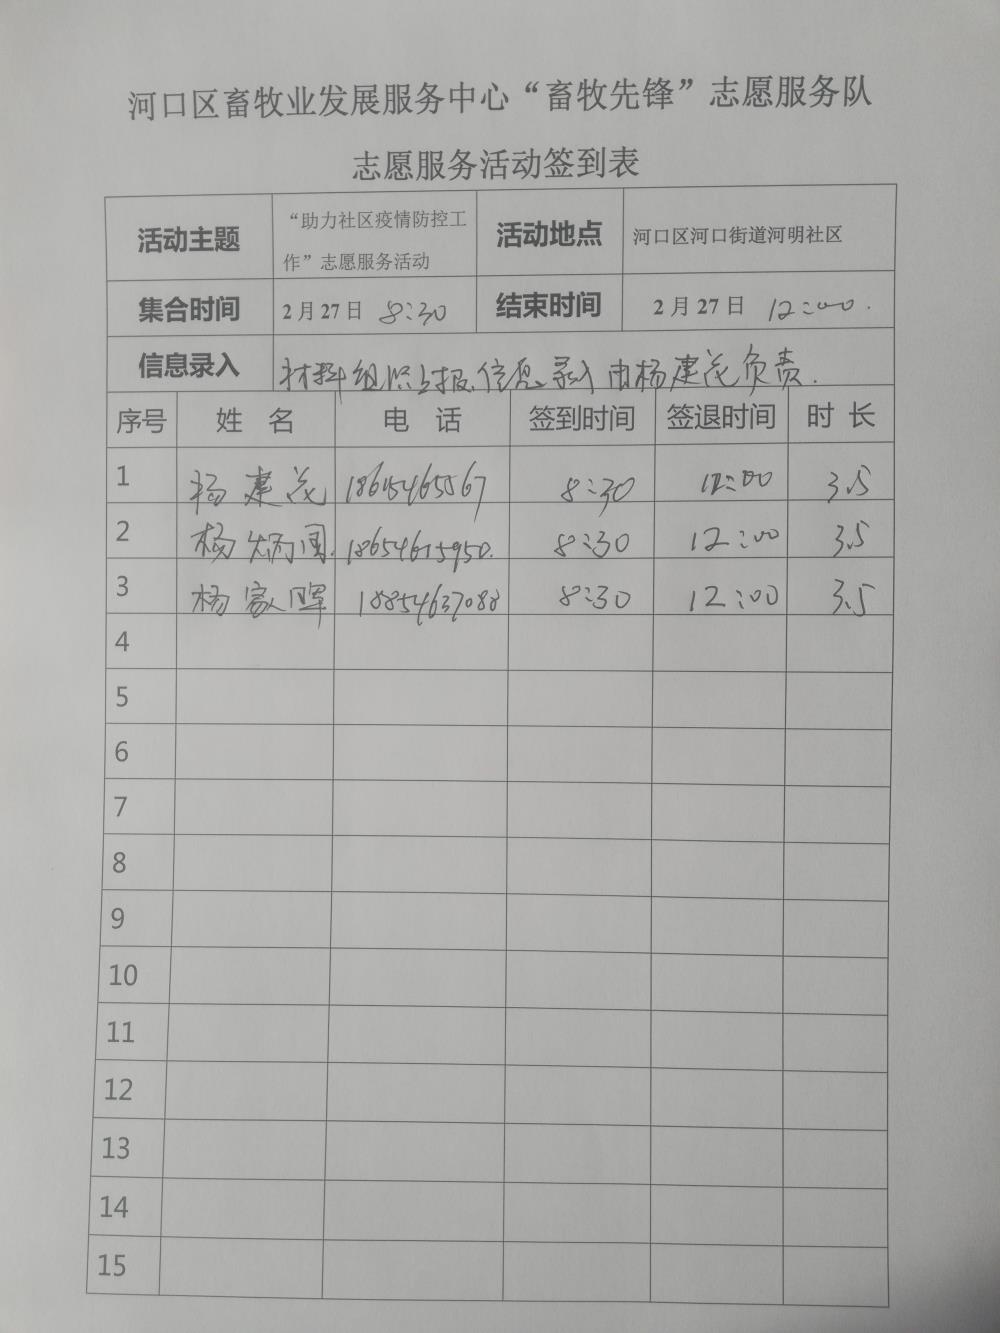 河口区畜牧业发展服务中心“畜牧先锋”志愿服务队
志愿服务活动签到表
活动主题 “助力社区疫情防控工作”志愿服务活动 活动地点 河口区河口街道河明社区
集合时间 2月27日 8:30 结束时间 2月27日 12:00.
信息录入 材料组织上报.信息录入由杨建茂负责.
序号 姓 名 电 话 签到时间 签退时间 时 长
1 杨建茂 18615465567 8:30 12:00 3.5
2 杨炳国. 18654615950. 8:30 12:00 3.5
3 杨家晖 18854637088 8:30 12:00 3.5
4
5
6
7
8
9
10
11
12
13
14
15